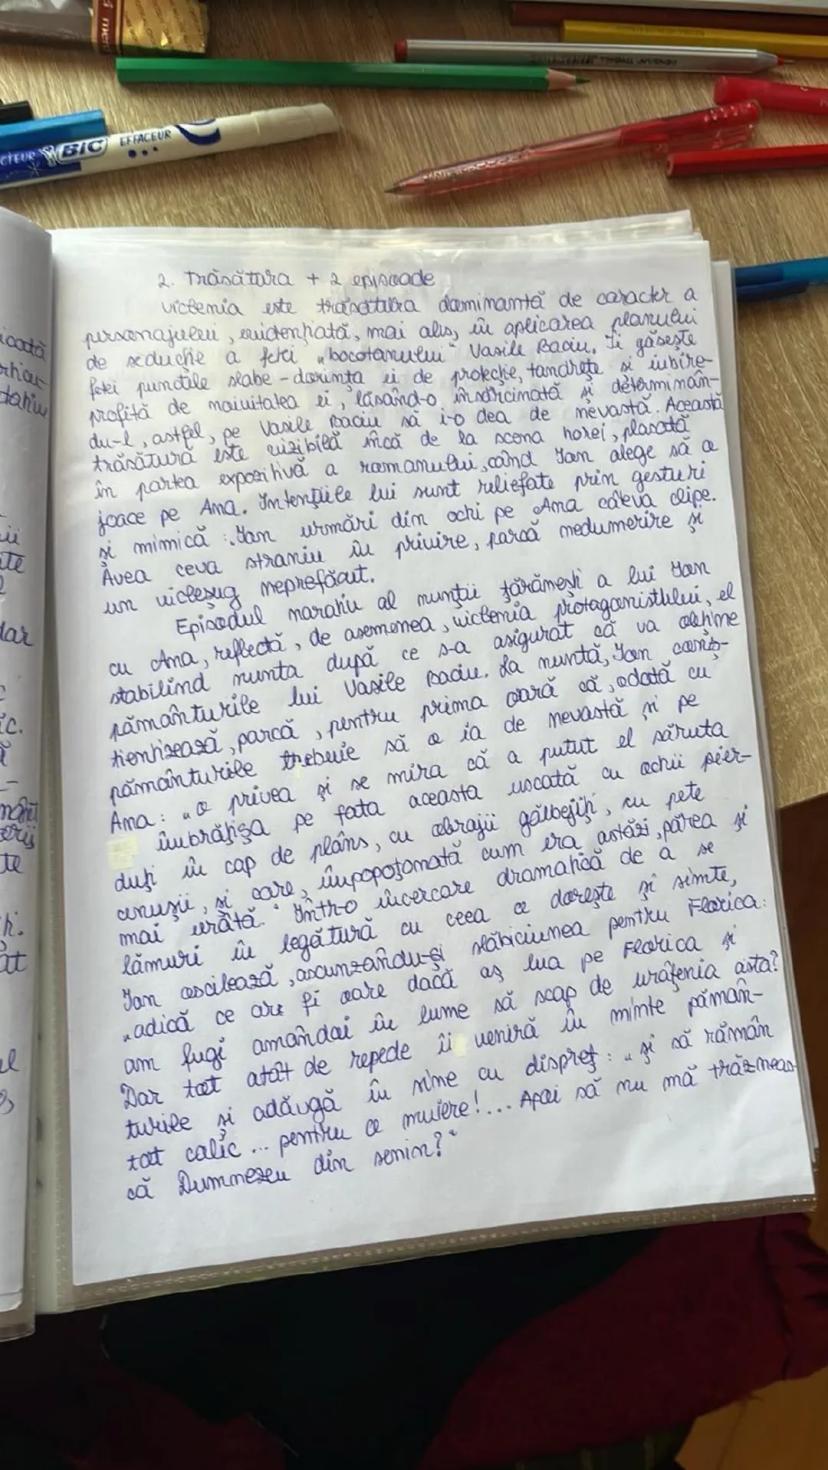 BIC EFFACEUR
2. Trăsătura + 2 episoade
Viclenia este trăsătura dominantă de caracter a
personajului, evidențiată, mai ales, în aplicarea planului
de seducție a fetei „bocotanului" Vasile Baciu. Îi găsește
fetei punctele slabe - dorința ei de protecție, tandrețe și iubire -
profită de naivitatea ei, lăsând-o însărcinată și determinân-
du-l, astfel, pe Vasile Baciu să i-o dea de nevastă. Această
trăsătură este vizibilă încă de la scena horei, plasată
în partea expozitivă a romanului, când Ion alege să o
joace pe Ana. Intențiile lui sunt reliefate prin gesturi
și mimică: „Ion urmări din ochi pe Ana câteva clipe.
Avea ceva straniu în privire, parcă nedumerire și
un vicleșug neprefăcut.
Episodul narativ al nunții țărănești a lui Ion
cu Ana, reflectă, de asemenea, viclenia protagonistului, el
stabilind nunta după ce s-a asigurat că va obține
pământurile lui Vasile Baciu. La nuntă, Ion conș-
tientizează, parcă, pentru prima oară că, odată cu
pământurile trebuie să o ia de nevastă și pe
Ana: „O privea și se mira că a putut el săruta
îmbrățișa pe fata aceasta uscată cu ochii pier-
duți în cap de plâns, cu obrajii gălbejiți, cu pete
cenușii, și care, împopoțonată cum era astăzi, părea și
mai urâtă." Într-o încercare dramatică de a se
lămuri în legătură cu ceea ce dorește și simte,
Ion oscilează, ascunzându-și slăbiciunea pentru Florica:
„adică ce ar fi oare dacă aș lua pe Florica și
am fugi amândoi în lume să scap de urâțenia asta?
Dar tot atât de repede îi veniră în minte pămân-
turile și adăugă în sine cu dispreț: „și să rămân
tot calic ... pentru o muiere!... Apoi să nu mă trăzneas-
că Dumnezeu din senin?"